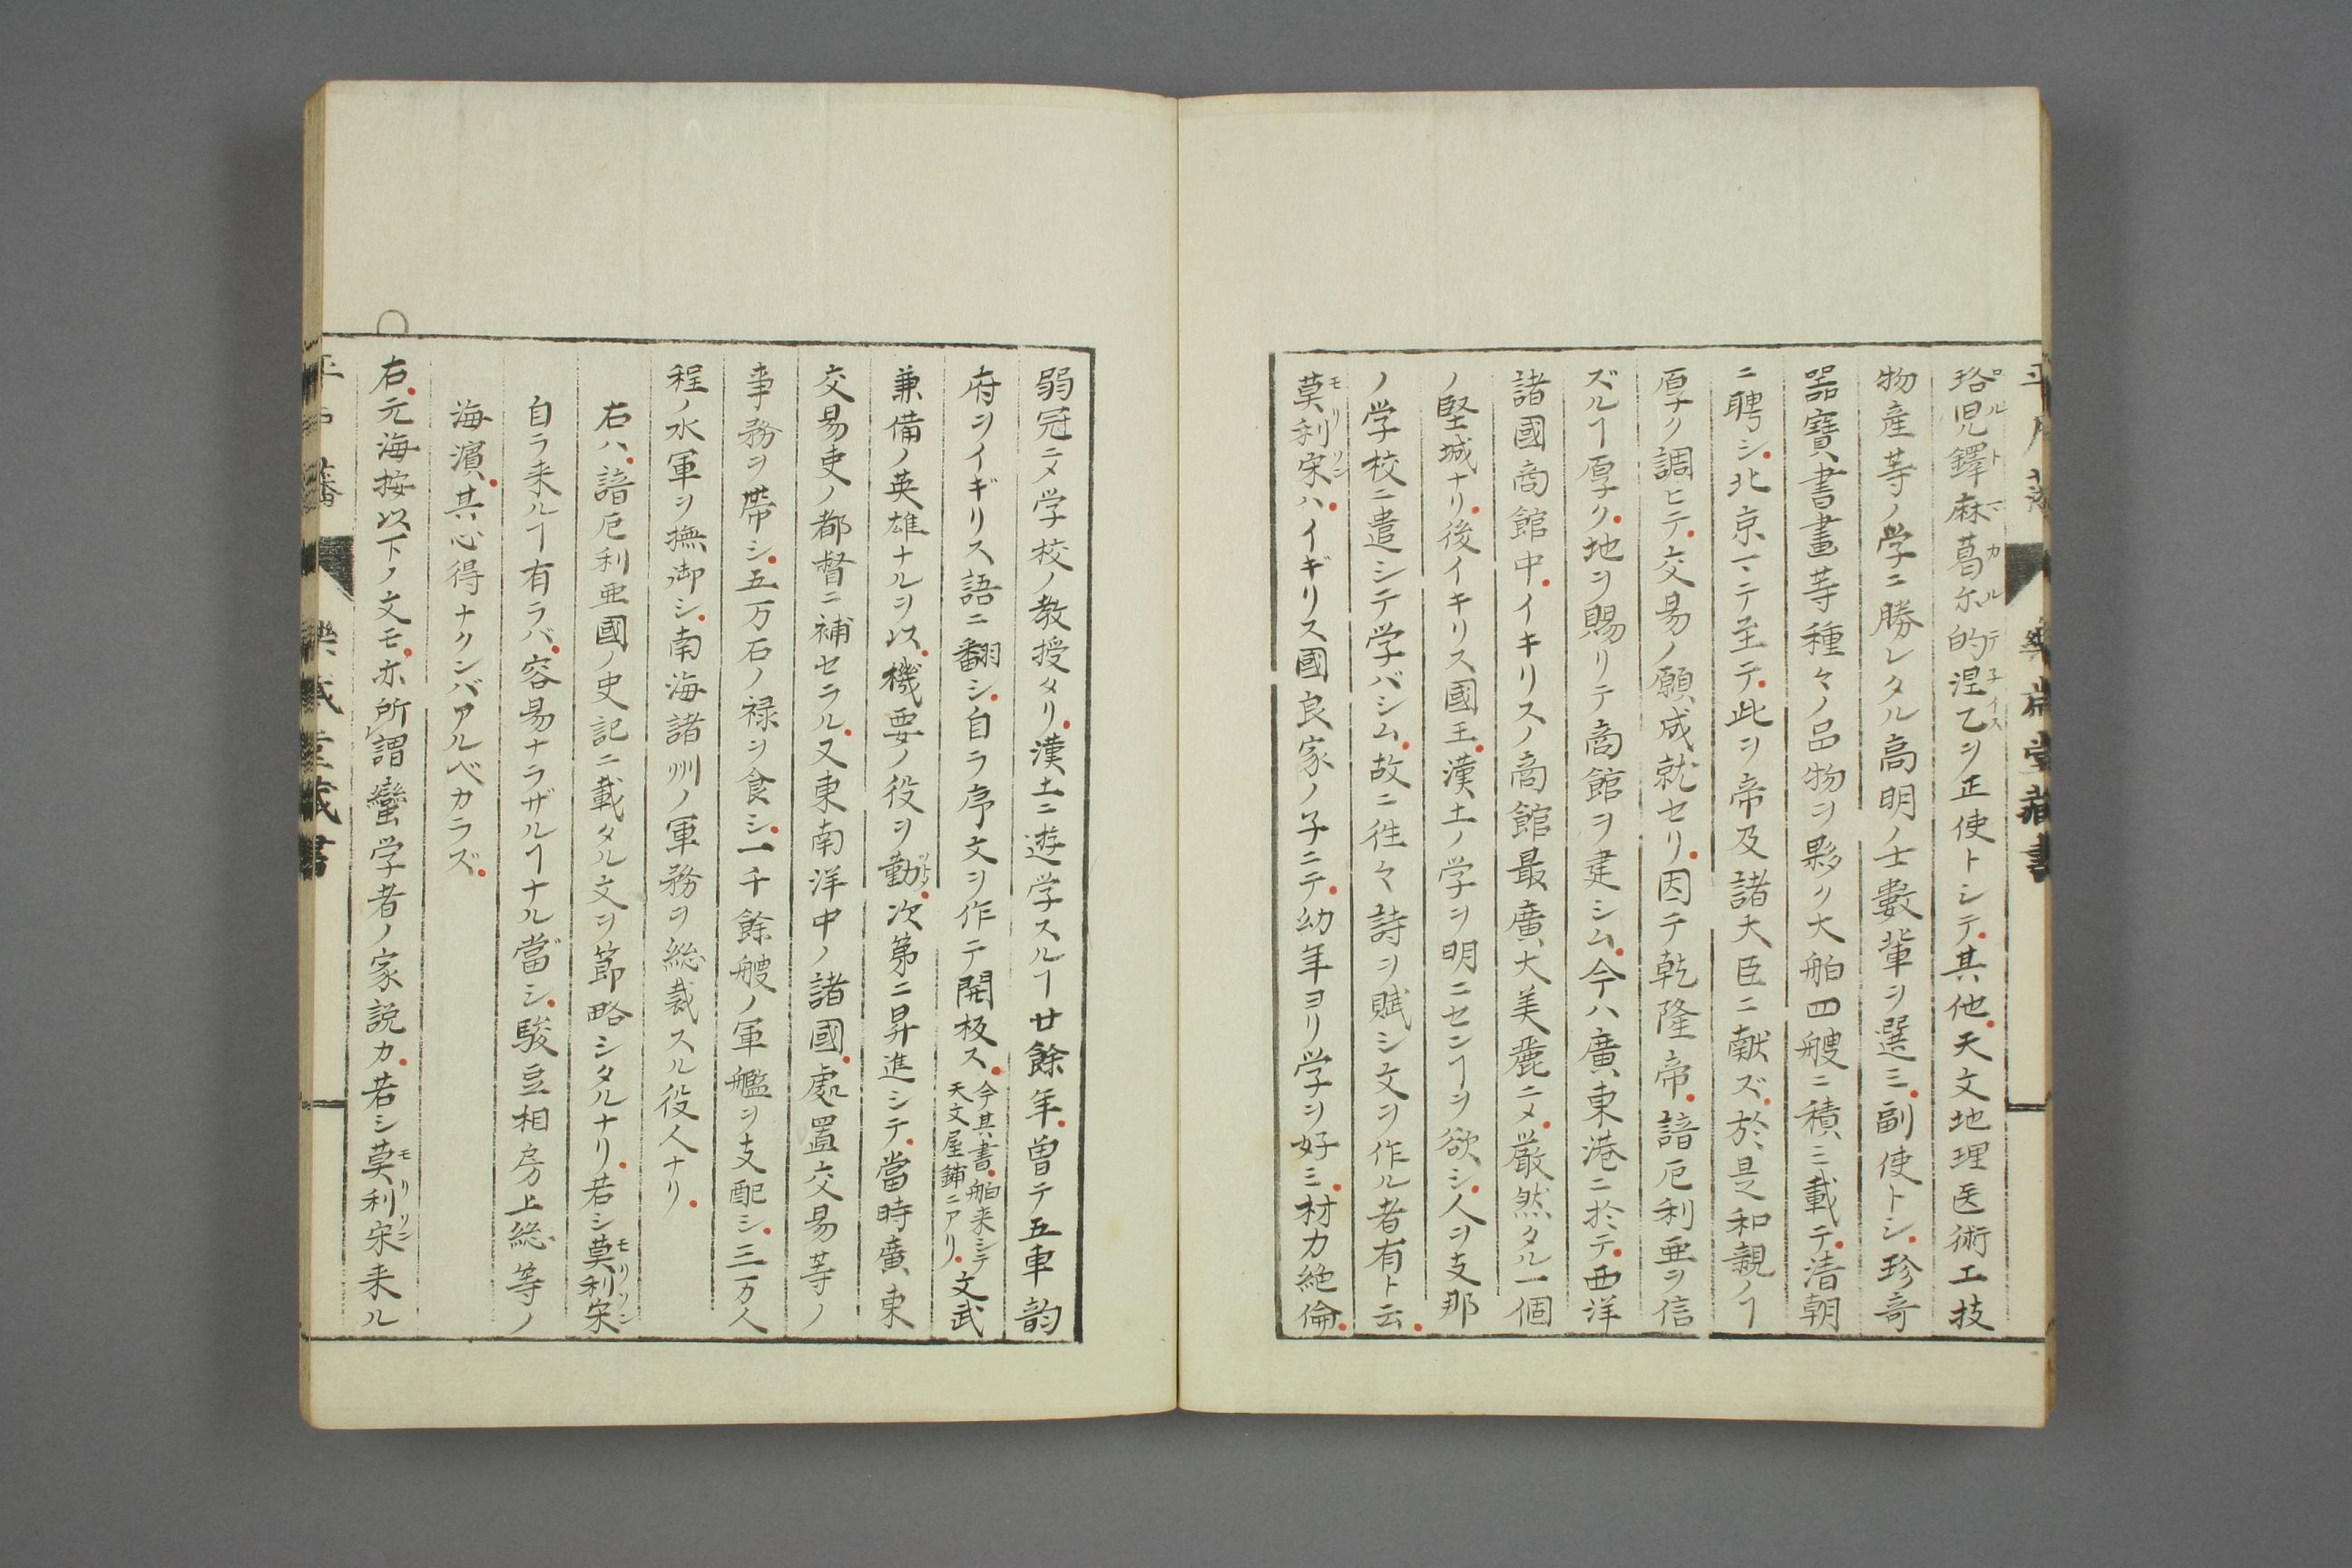 珞児鐸麻葛尓的涅乙ヲ正使トシテ其他天文地理医術工技
物産等ノ学ニ勝レタル高明ノ士數輩ヲ選ミ副使トシ珍竒
噐寳書畫等種々ノ品物ヲ夥ク大舶四艘ニ積ミ載テ清朝
ニ聘シ北京マテ至テ此ヲ帝及諸大臣ニ献ズ於是和親ノヿ
厚ク調ヒテ交易ノ願成就セリ因テ乾隆帝諳厄利亜ヲ信
ズルヿ厚ク地ヲ賜リテ商館ヲ建シム今ハ廣東港ニ於テ西洋
諸國商館中イキリスノ商館最廣大美麗ニメ厳然タル一個
ノ堅城ナリ後イキリス國王漢土ノ学ヲ明ニセンヿヲ欲シ人ヲ支那
ノ学校ニ遣シテ学バシム故ニ徃々詩ヲ賦シ文ヲ作ル者有ト云
莫利宋ハイギリス國良家ノ子ニテ幼年ヨリ学ヲ好ミ材力絶倫
弱冠ニメ学校ノ教授タリ漢土ニ遊学スルヿ廿餘年曽テ五車韵
府ヲイギリス語ニ翻シ自ラ序文ヲ作テ開板ス今其書舶来シテ天文屋鋪ニアリ文武
兼備ノ英雄ナルヲ以機要ノ役ヲ勤次第ニ昇進シテ當時廣東
交易吏ノ都督ニ補セラル又東南洋中ノ諸國處置交易等ノ
事務ヲ帶シ五万石ノ禄ヲ食シ一千餘艘ノ軍艦ヲ支配シ三万人
程ノ水軍ヲ撫御シ南海諸州ノ軍務ヲ総裁スル役人ナリ
右ハ諳厄利亜國ノ史記ニ載タル文ヲ節略シタルナリ若シ莫利宋
自ラ来ルヿ有ラバ容易ナラザルヿナル當シ駿豆相房上総等ノ
海濵其心得ナクンバアルベカラズ
右元海按以下ノ文モ亦所謂蠻学者ノ家説カ若シ莫利宋来ル